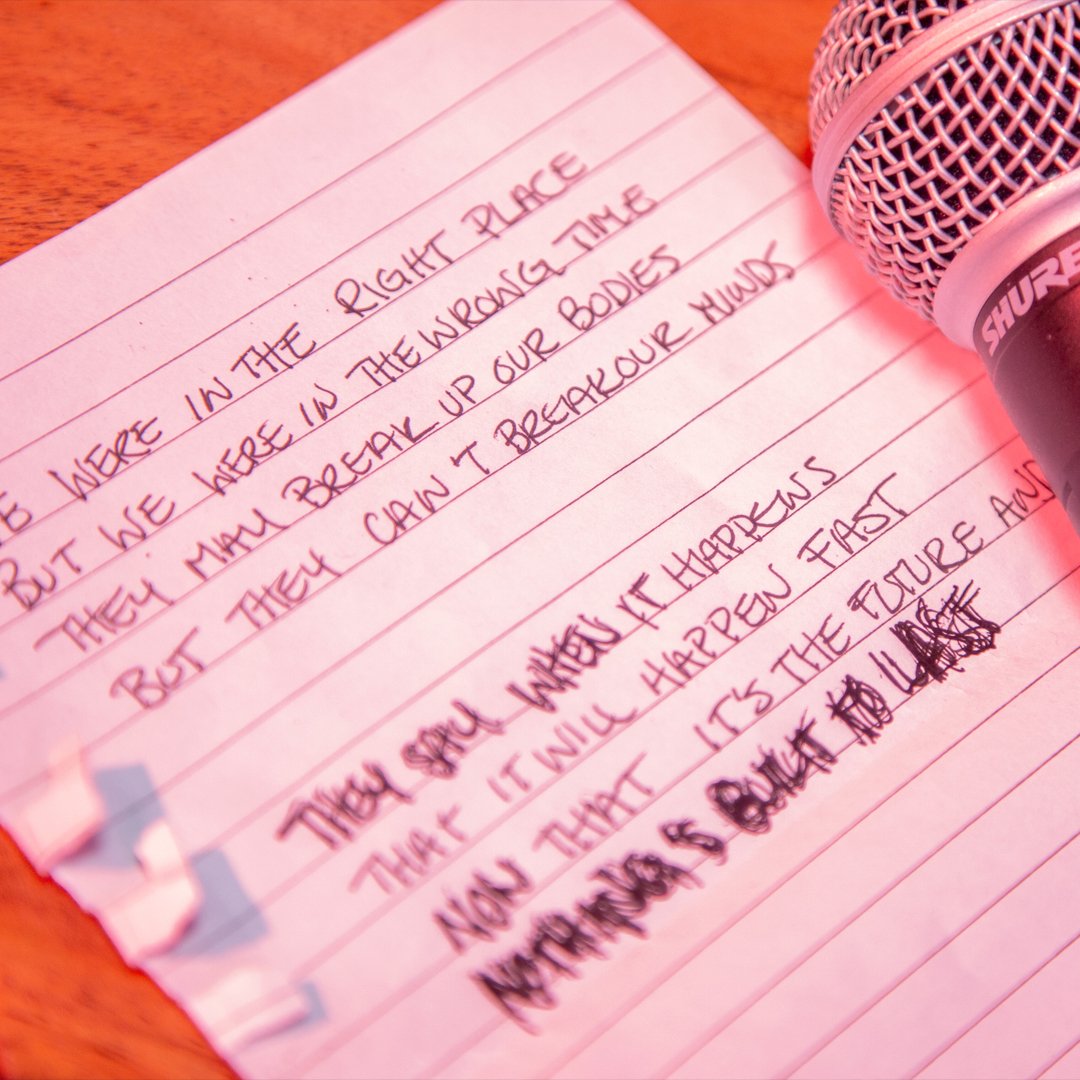 WE WERE IN THE RIGHT PLACE
BUT WE WERE IN THE WRONG TIME
THEY MAY BREAK UP OUR BODIES
BUT THEY CAN'T BREAK OUR MINDS
THEY SAY WHEN IT HAPPENS
THAT IT WILL HAPPEN FAST
NOW THAT IT'S THE FUTURE AND
NOTHING'S BUILT TO LAST
SHURE